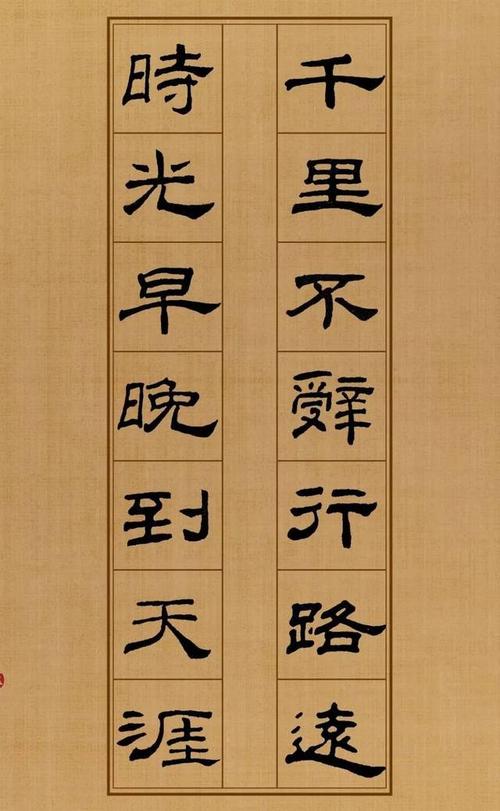 千里不辭行路遠
時光早晚到天涯